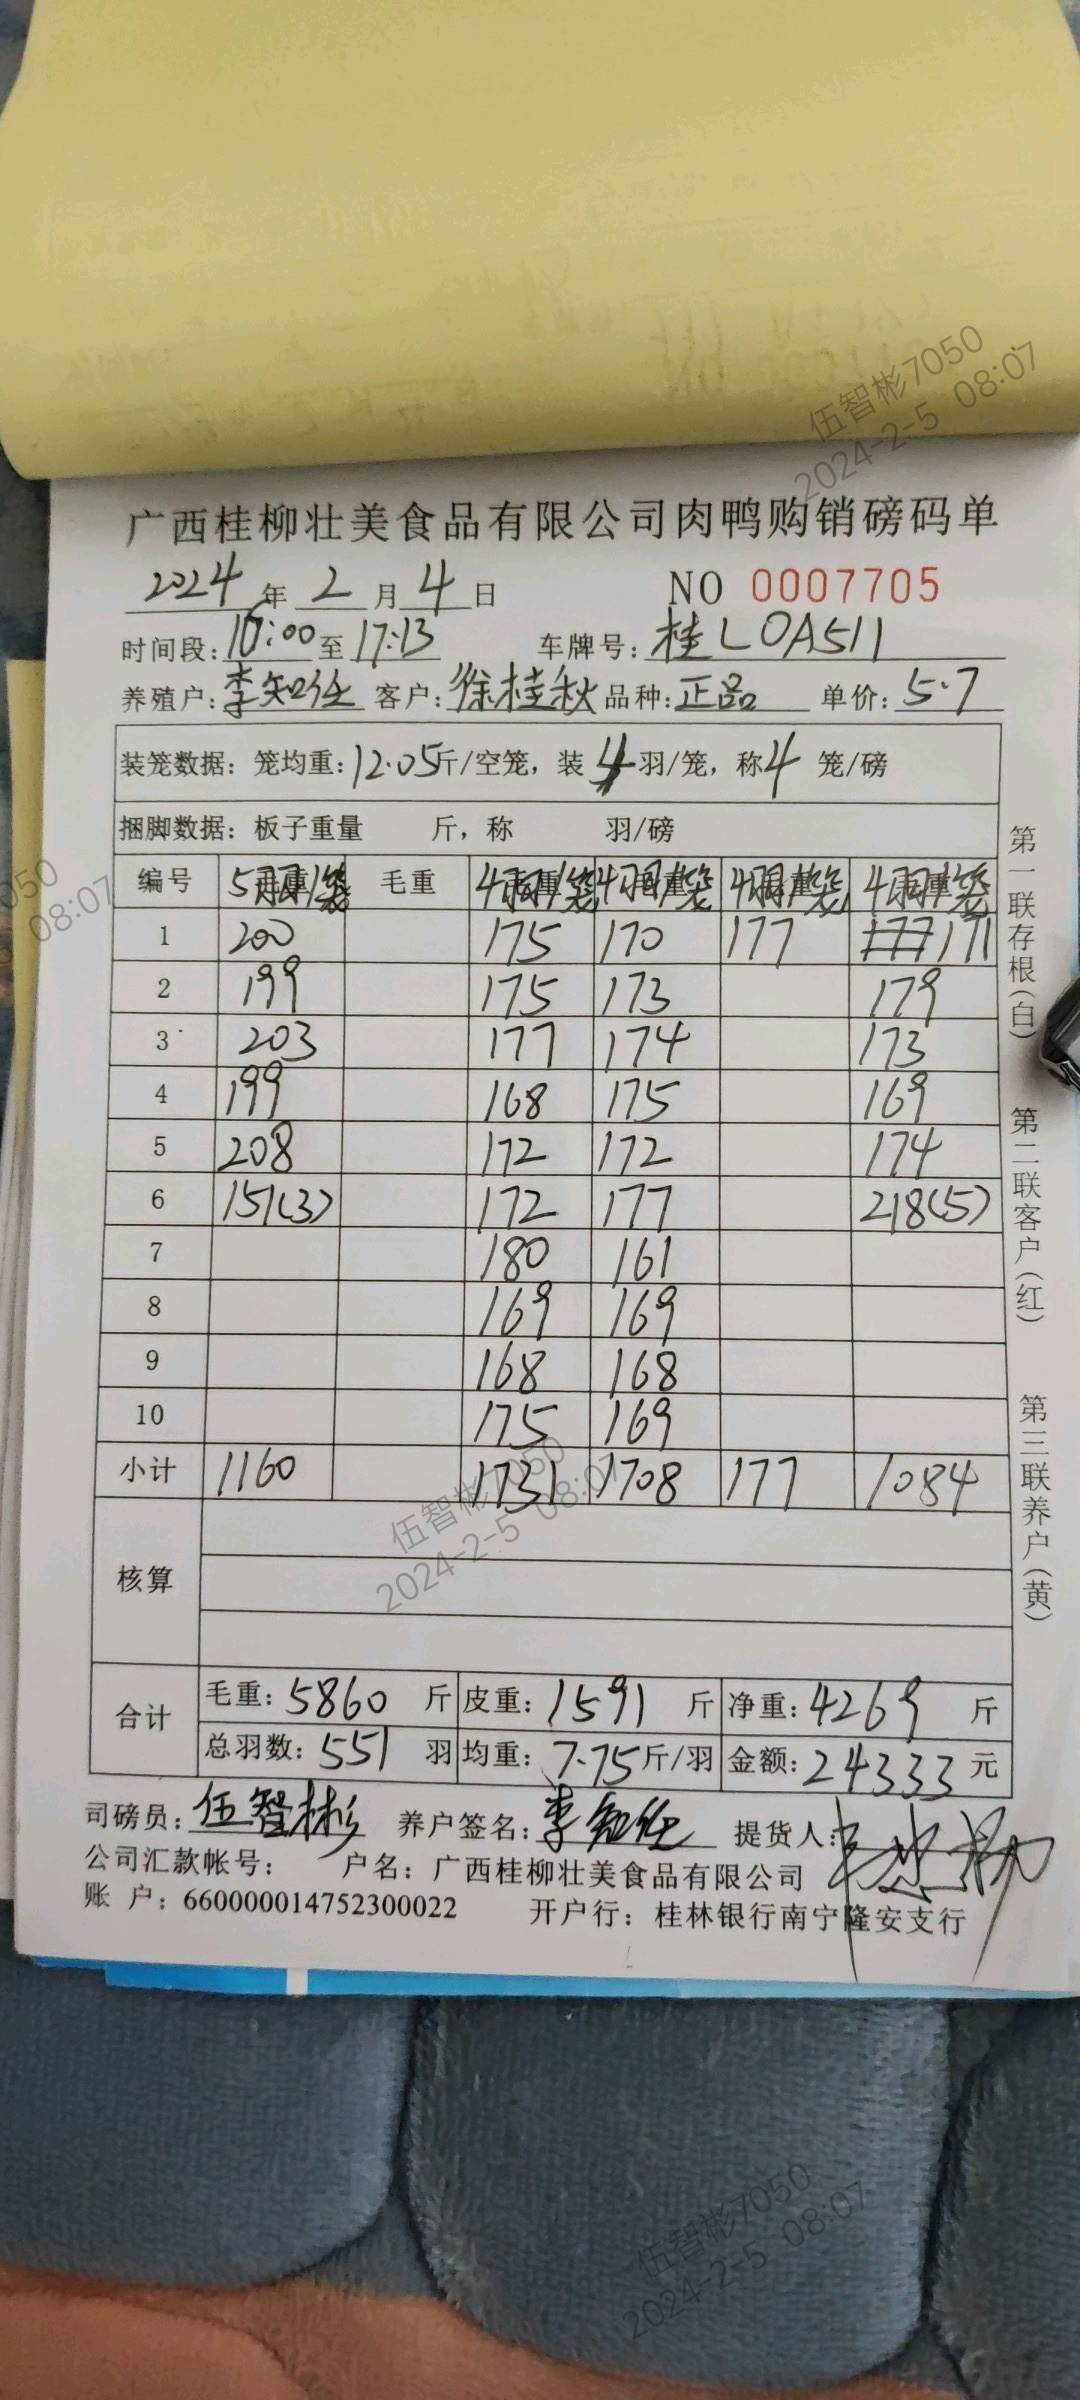 伍智彬7050
2024-2-5 08:07
广西桂柳壮美食品有限公司肉鸭购销磅码单
2024年2月4日 NO 0007705
时间段:16:00至17:13 车牌号:桂L0A511
养殖户:李知任 客户:徐桂秋 品种:正品 单价:5.7
装笼数据:笼均重:12.05斤/空笼,装4羽/笼,称4笼/磅
捆脚数据:板子重量 斤,称 羽/磅
编号 5羽/笼 毛重 4羽/笼 4羽/笼 4羽/笼 4羽/笼
1 200 175 170 177 177 171
2 199 175 173 179
3 203 177 174 173
4 199 168 175 169
5 208 172 172 174
6 151(3) 172 177 218(5)
7 180 161
8 169 169
9 168 168
10 175 169
小计 1160 1731 1708 177 1084
核算
合计 毛重:5860斤 皮重:1591斤 净重:4269斤
总羽数:551羽 均重:7.75斤/羽 金额:24333元
司磅员:伍智彬 养户签名:李知任 提货人:
公司汇款帐号: 户名:广西桂柳壮美食品有限公司
账 户:660000014752300022 开户行:桂林银行南宁隆安支行
第一联存根(白)
第二联客户(红)
第三联养户(黄)
050
08:07
伍智彬7050
2024-2-5 08:07
伍智彬7050
2024-2-5 08:07